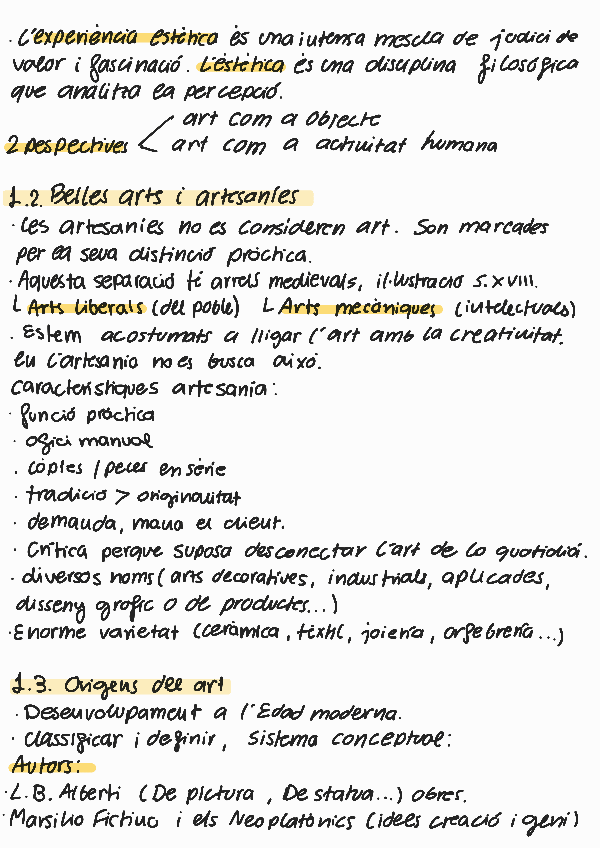 · L'experiència estètica és una intensa mescla de judici de
valor i fascinació. L'estètica és una disciplina filosófica
que analitza la percepció.
art com a objecte
2 pespectives < art com a activitat humana
1.2. Belles arts i artesanies
· Les artesanies no es consideren art. Son marcades
per la seva distinció pràctica.
· Aquesta separació té arrels medievals, il·lustració s.XVIII.
L Arts liberals (del poble) L Arts mecàniques (intelectuals)
· Estem acostumats a lligar l'art amb la creativitat.
en l'artesania no es busca això.
característiques artesania:
· funció pràctica
· ofici manual
· còpies / peces en sèrie
· tradició > originalitat
· demanda, mana el client.
· Crítica perque suposa desconectar l'art de lo quotidià.
· diversos noms (arts decoratives, industrials, aplicades,
disseny gràfic o de productes...)
· Enorme varietat (ceràmica, tèxtil, joieria, orfebreria...)
1.3. Origens del art
· Desenvolupament a l'Edad moderna.
· classificar i definir, sistema conceptual:
Autors:
· L.B. Alberti (De pictura, De statua...) obres.
· Marsilio Fichino i els Neoplatònics (idees creació i geni)